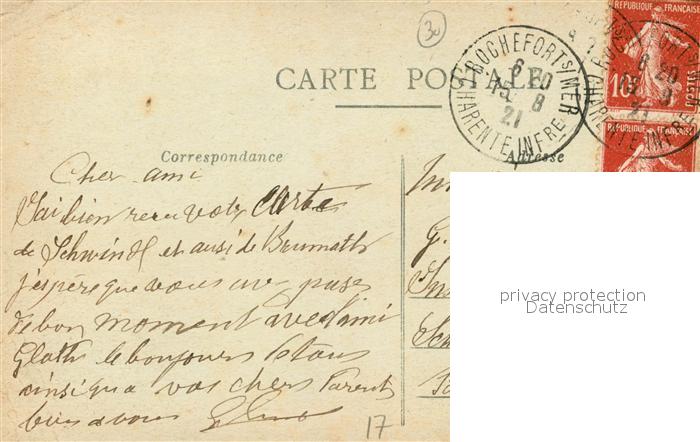 30
RÉPUBLIQUE FRANÇAISE
CARTE POSTALE
ROCHEFORT S/MER
6 20
15 8
21
CHARENTE INFRE
10c
POSTES
RÉPUBLIQUE FRANÇAISE
Correspondance
Adresse
Cher ami
J'ai bien recu votre Carte
de Schwindl et ausi de Brumath
j'espère que vous
de bon moment avec l'ami
Gloth le bonjour
ainsi qu'a vos chers Parents
bien a vous
G.
17
privacy protection
Datenschutz